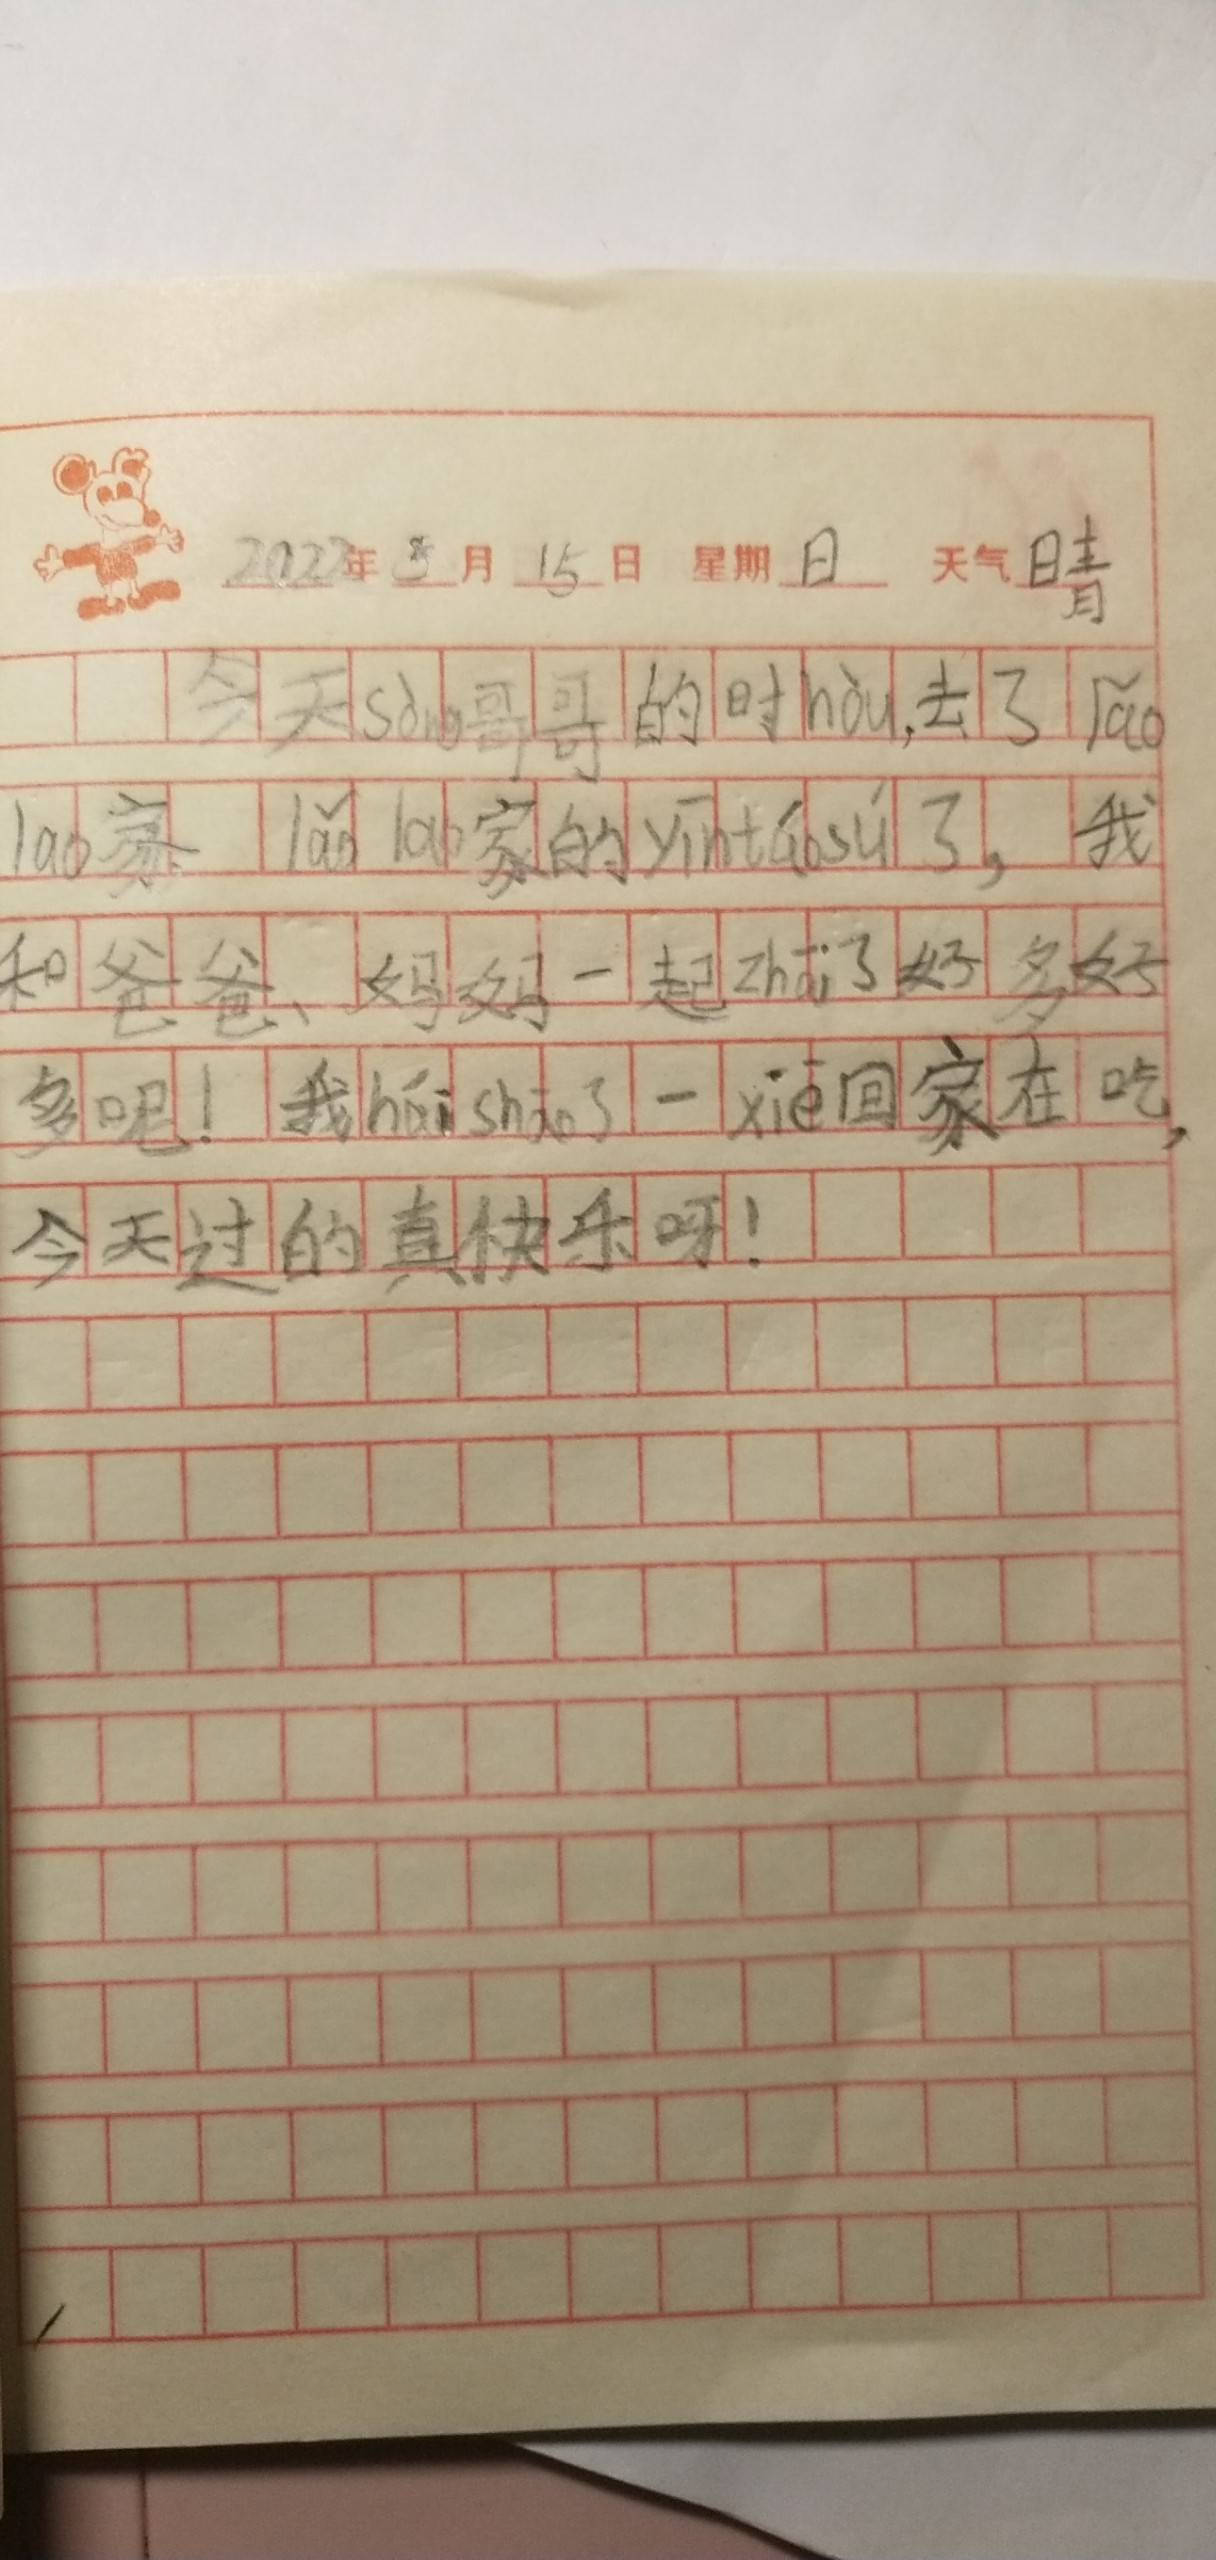 2022年5月15日 星期日 天气晴
今天sòng哥哥的时hòu,去了lǎo
lao家 lǎo lao家的yīntáosú了，我
和爸爸、妈妈一起zhāi了好多好
多吧！我hái shāo了一xiē回家在吃，
今天过的真快乐呀！